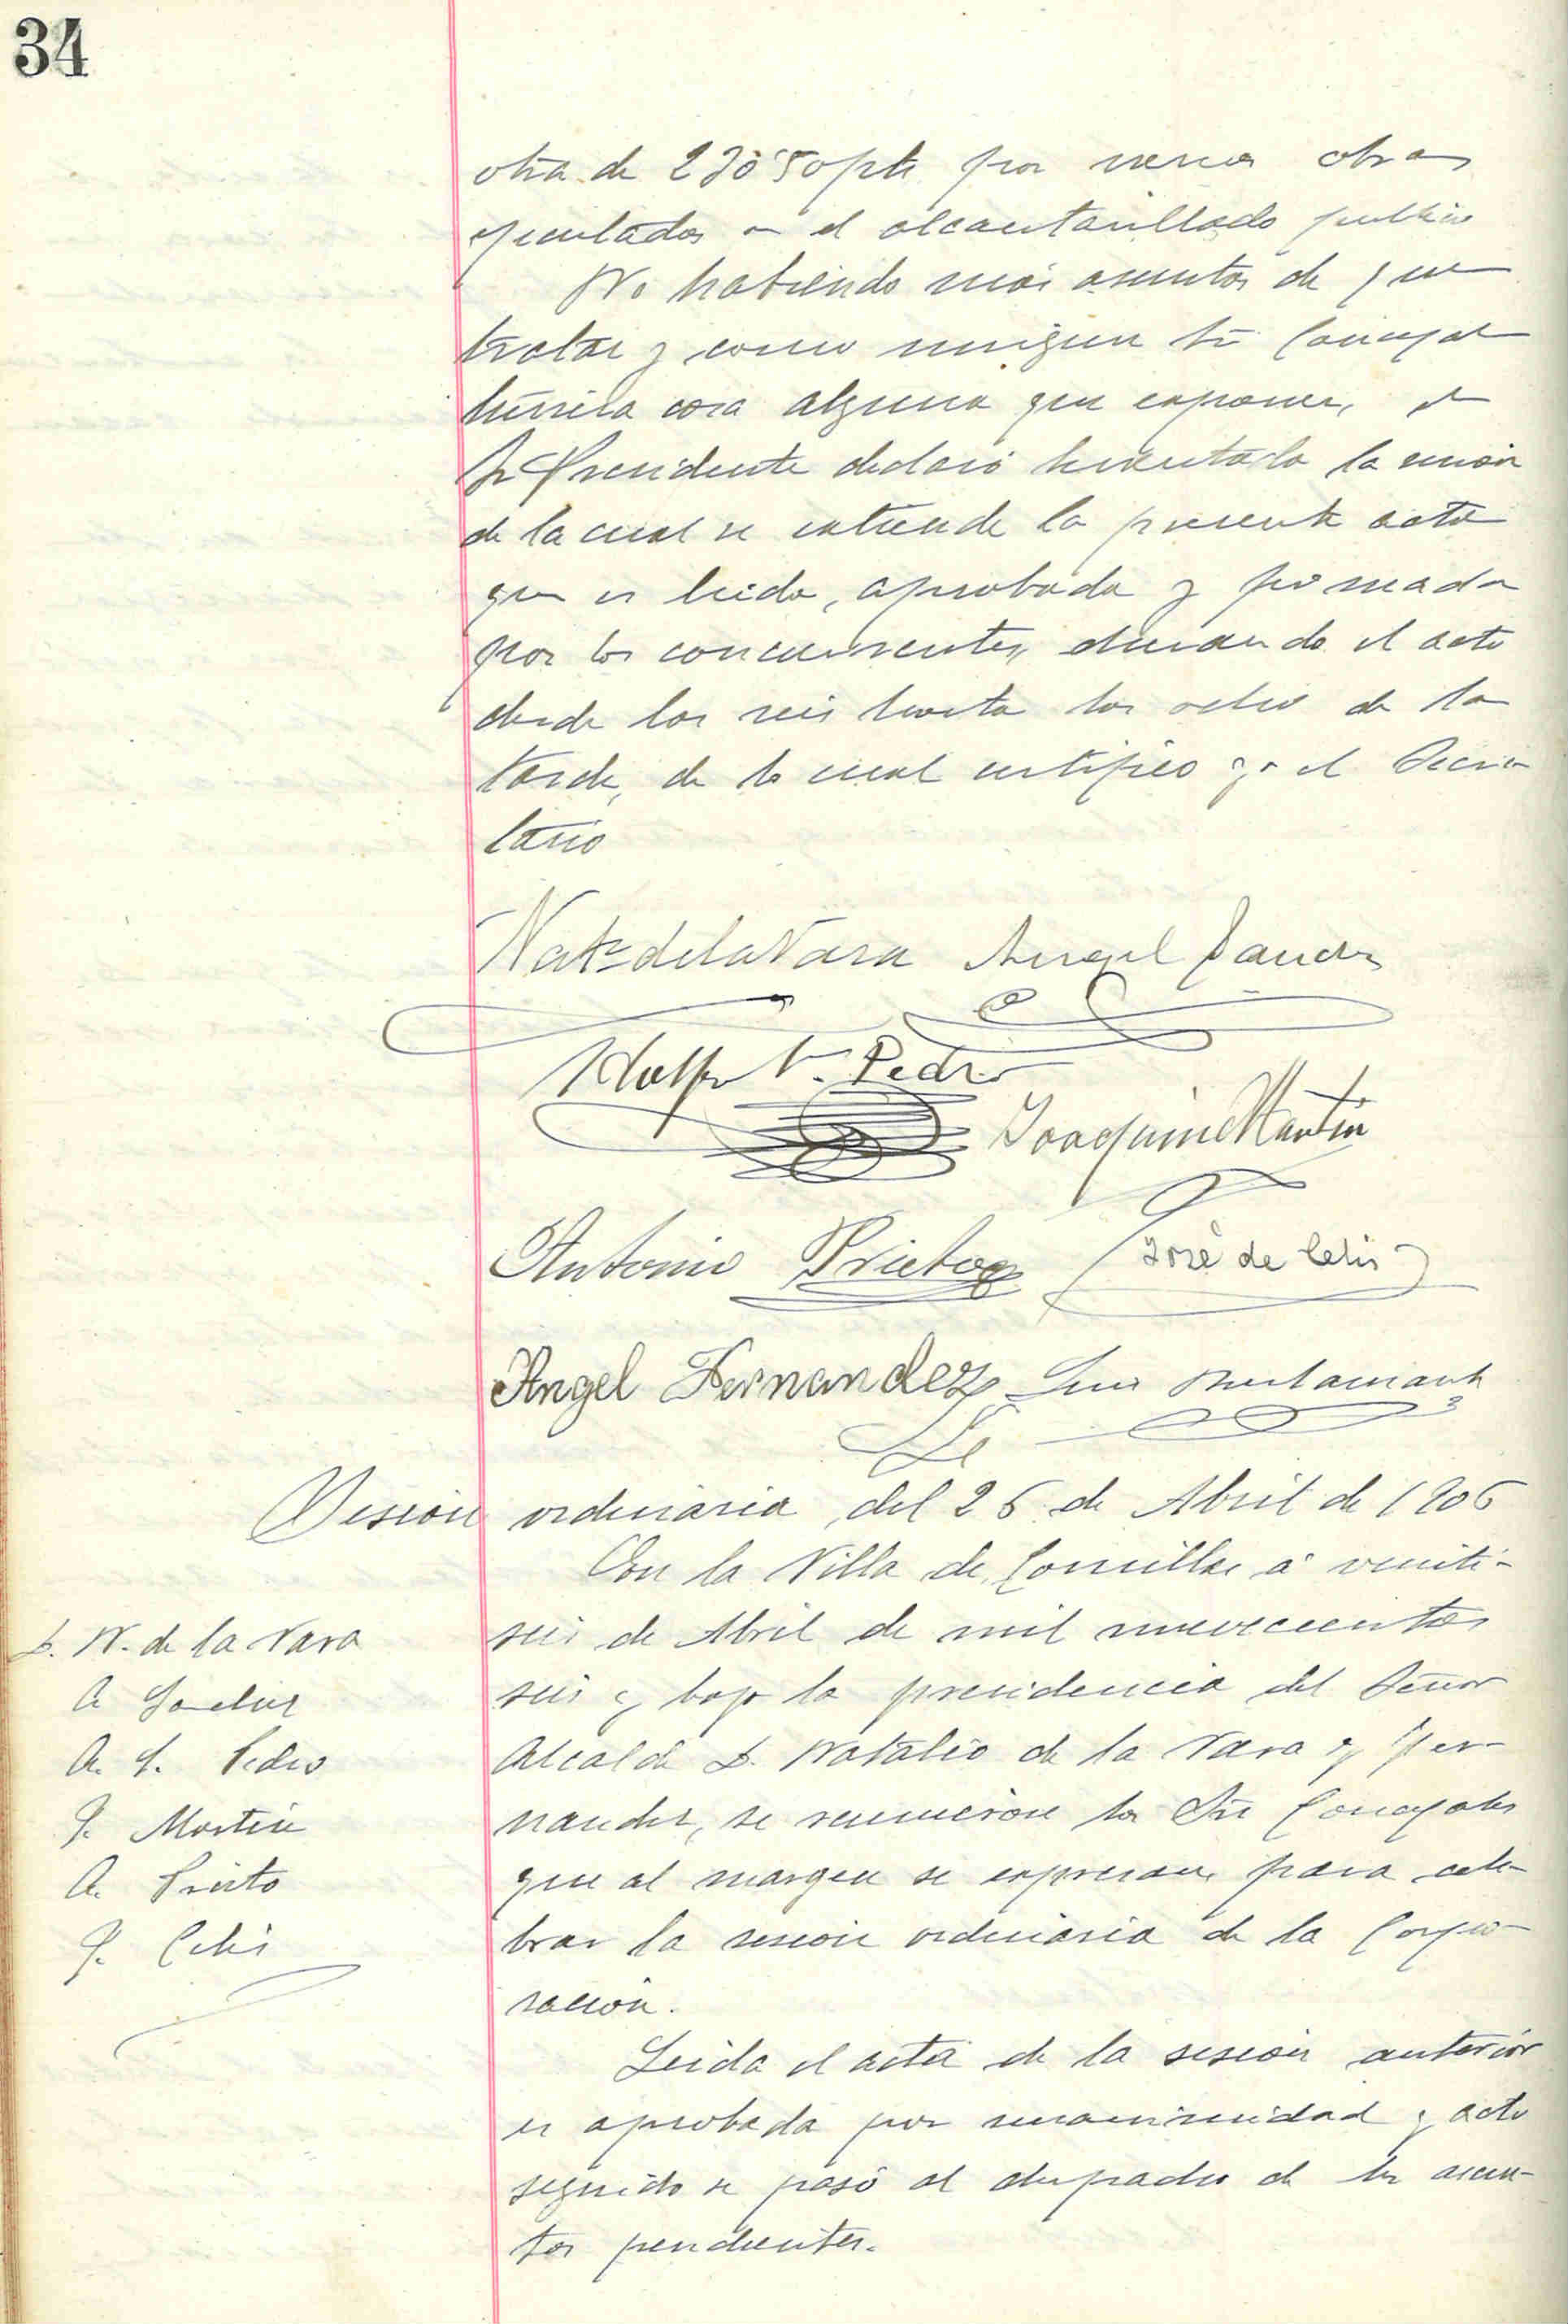 34
otra de 230'50 pts por varias obras
ejecutadas en el alcantarillado publico
No habiendo más asuntos de que
tratar y como ningun Sr Concejal
tuviera cosa alguna que exponer, el
Sr Presidente declaró levantada la sesión
de la cual se extiende la presente acta
que es leida, aprobada y firmada
por los concurrentes, durando el acto
desde las seis hasta las ocho de la
tarde, de lo cual certifico yo el Secre
tario
Nat. de la Vara Angel Sanchez
Adolfo S. Pedro
Joaquin Martin
Antonio Prieto José de Celis
Angel Fernandez Luis Bustamante
Sesión ordinaria del 26 de Abril de 1906
En la Villa de Comillas á veinti-
seis de Abril de mil novecientos
seis y bajo la presidencia del Señor
Alcalde D. Natalio de la Vara y Fer-
nandez, se reunieron los Sres Concejales
que al margen se expresan, para cele-
brar la sesión ordinaria de la Corpo-
ración.
D. N. de la Vara
A Sanchez
A. S. Pedro
J. Martin
A. Prieto
J. Celis
Leida el acta de la sesión anterior
es aprobada por unanimidad y acto
seguido se pasó al despacho de los asun-
tos pendientes.